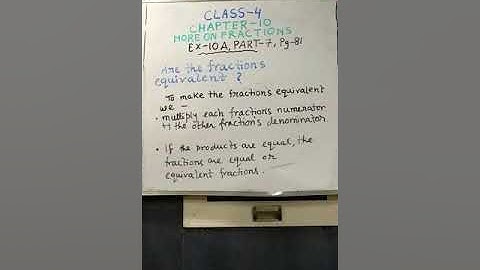 CLASS-4
CHAPTER-10
MORE ON FRACTIONS
EX-10A, PART-7, Pg-81
Are the fractions
equivalent ?
To make the fractions equivalent
we -
• multiply each fractions numerator
the other fractions denominator
• If the products are equal, the
fractions are equal or
equivalent fractions.